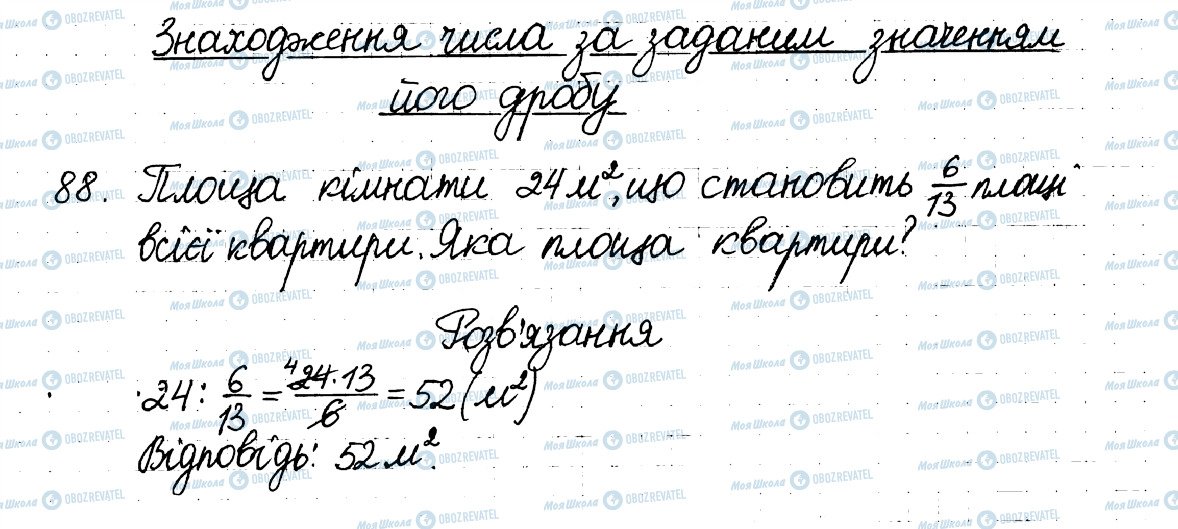 Знаходження числа за заданим значенням
його дробу
88. Площа кімнати 24 м², що становить 6/13 площі
всієї квартири. Яка площа квартири?
Розв'язання
24 : 6/13 = ⁴24·13/6 = 52 (м²)
Відповідь: 52 м².